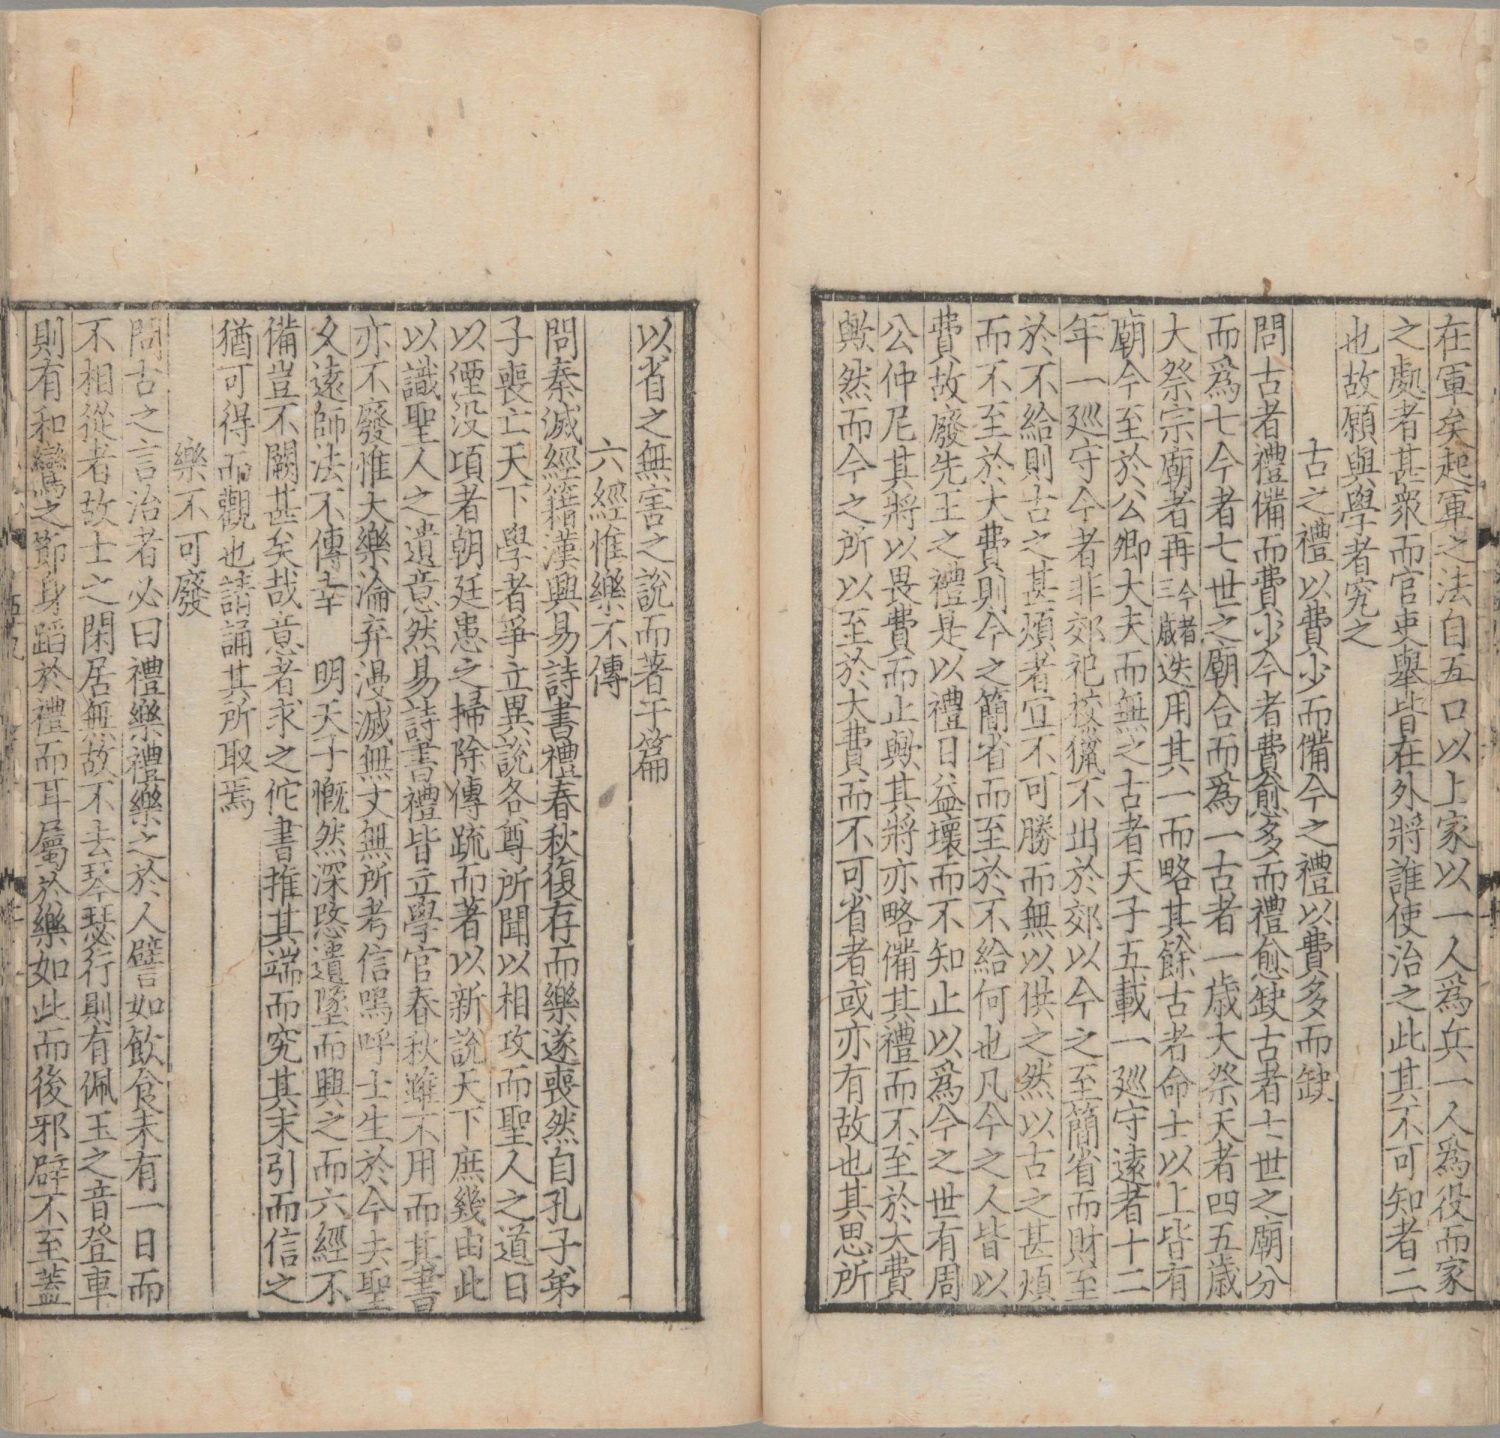 在軍矣起軍之法自五口以上家以一人爲兵一人爲役而家
之處者甚衆而官吏舉皆在外將誰使治之此其不可知者二
也故願與學者究之
古之禮以費少而備今之禮以費多而缺
問古者禮備而費少今者費愈多而禮愈缺古者七世之廟分
而爲七今者七世之廟合而爲一古者一歲大祭天者四五歲
大祭宗廟者再今者三歲迭用其一而略其餘古者命士以上皆有
廟今至於公卿大夫而無之古者天子五載一廵守遠者十二
年一廵守今者非郊祀校獵不出於郊以今之至簡省而財至
於不給則古之甚煩者宜不可勝而無以供之然以古之甚煩
而不至於大費則今之簡省而至於不給何也凡今之人皆以
費故廢先王之禮是以禮日益壞而不知止以爲今之世有周
公仲尼其將以畏費而止歟其將亦略備其禮而不至於大費
歟然而今之所以至於大費而不可省者或亦有故也其思所
以省之無害之說而著于篇
六經惟樂不傳
問秦滅經籍漢興易詩書禮春秋復存而樂遂喪然自孔子弟
子喪亡天下學者爭立異說各尊所聞以相攻而聖人之道日
以堙没項者朝廷患之掃除傳疏而著以新說天下庶幾由此
以識聖人之遺意然易詩書禮皆立學官春秋雖不用而其書
亦不廢惟大樂淪弃漫滅無文無所考信嗚呼士生於今去聖
久遠師法不傳幸　明天子慨然深愍遺墜而興之而六經不
備豈不闕甚矣哉意者求之佗書推其端而究其末引而信之
猶可得而觀也請誦其所取焉
樂不可廢
問古之言治者必曰禮樂禮樂之於人譬如飲食未有一日而
不相從者故士之閑居無故不去琴瑟行則有佩玉之音登車
則有和鸞之節身蹈於禮而耳屬於樂如此而後邪辟不至蓋